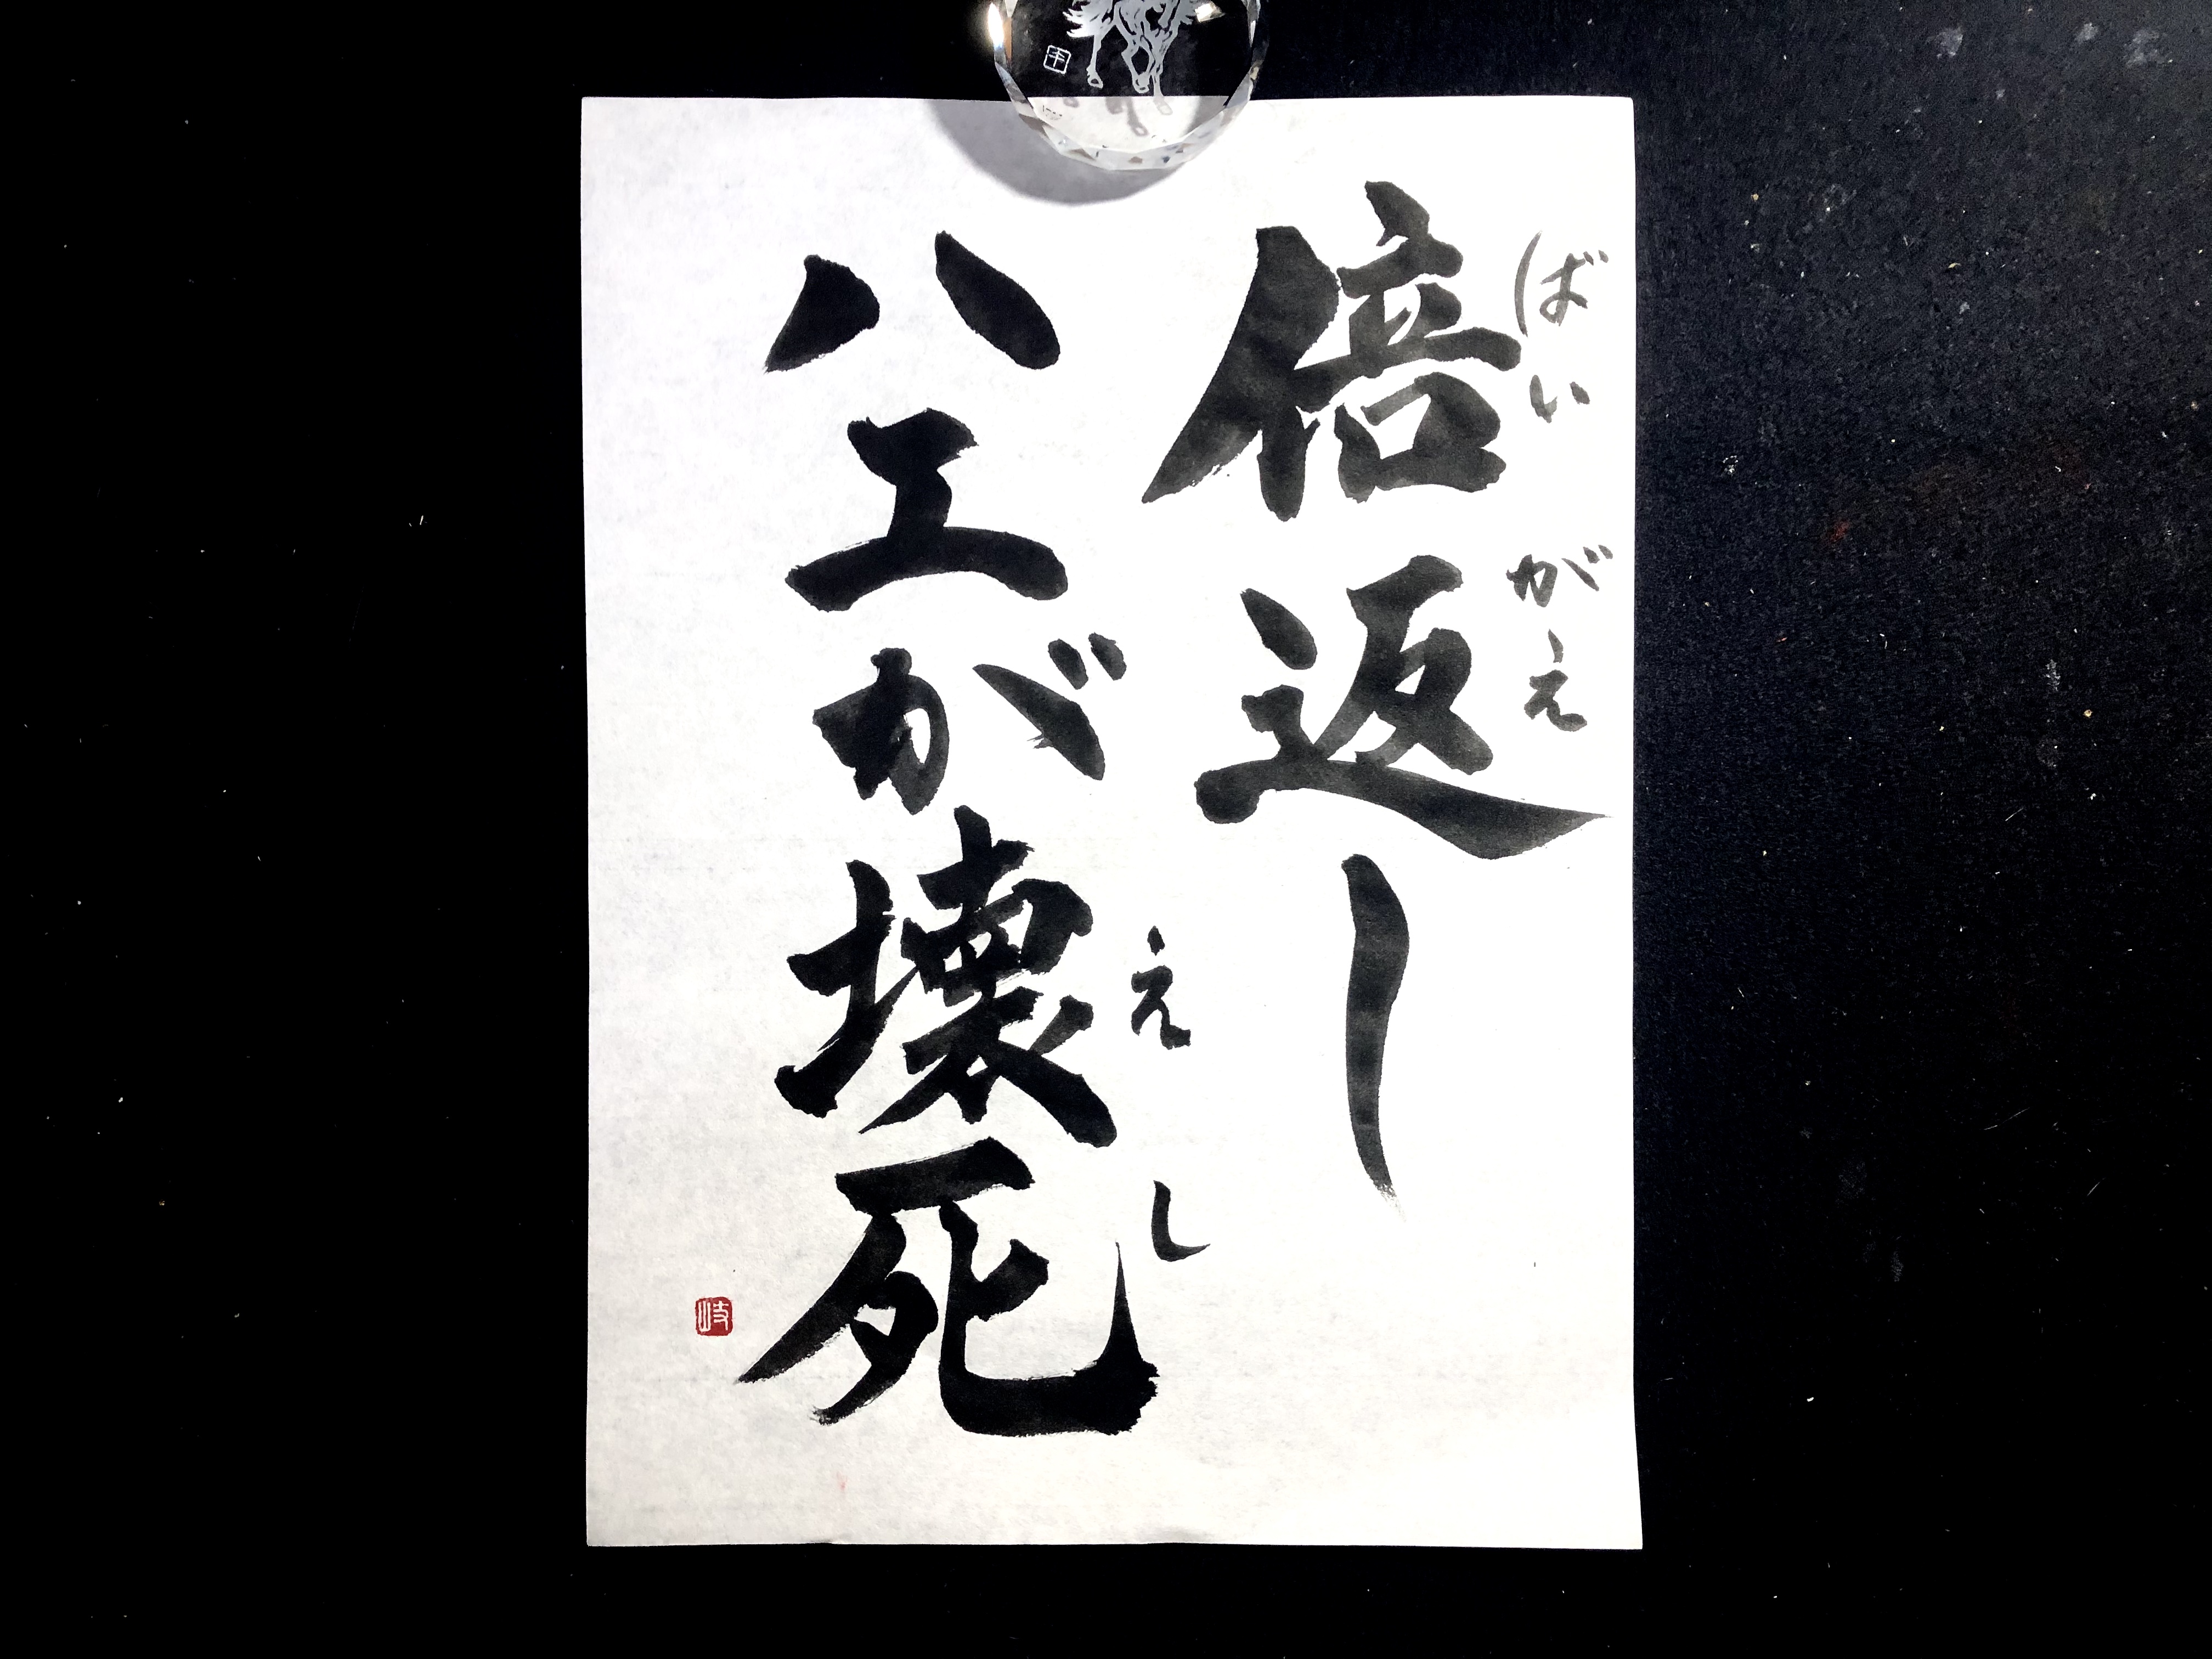 倍返し
ばいがえ
ハエが壊死
えし
岐